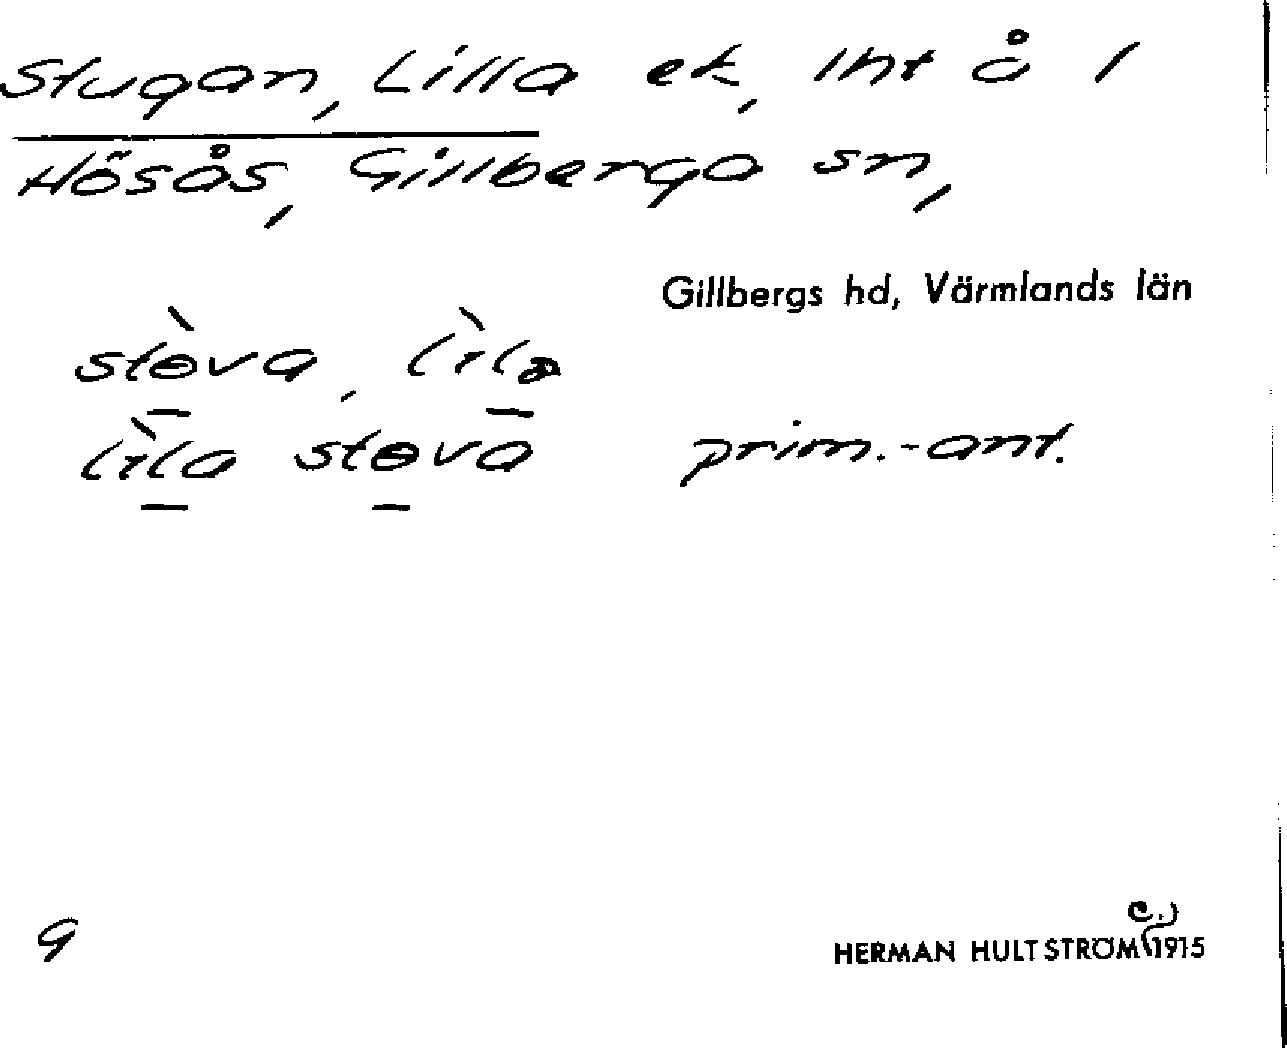 Stugan, Lilla ek, lht å 1
Hösås, Gillberga sn,
Gillbergs hd, Värmlands län
stɵ̀va, lìla
lìla stɵva prim.-ant.
9
c.)
HERMAN HULTSTRÖM 1915